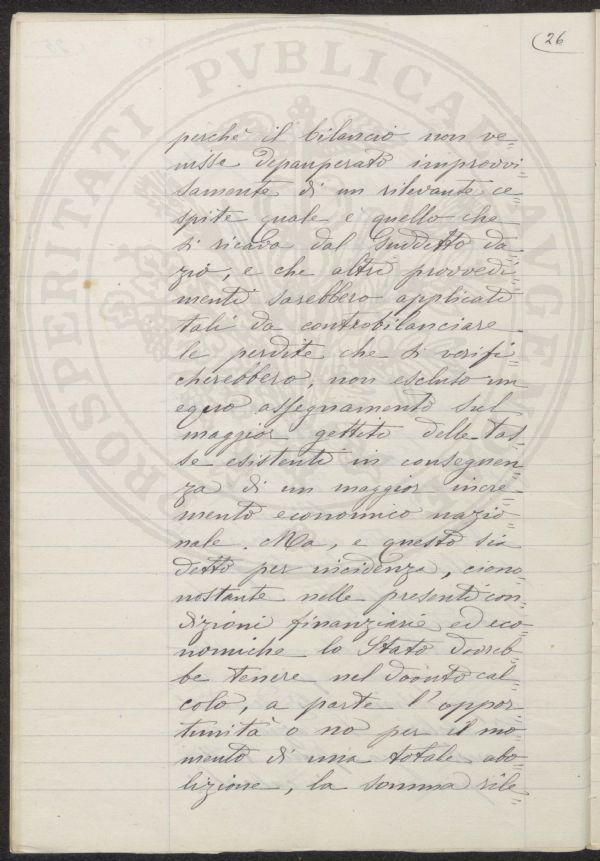 26
perchè il bilancio non ve=
nisse depauperato improvvi
samente di un rilevante ce=
spite quale è quello che
si ricava dal suddetto da=
zio, e che altri provvedi=
menti sarebbero applicati
tali da controbilanciare
le perdite che si verifi=
cherebbero, non escluso un
equo assegnamento sul
maggior gettito delle tas=
se esistenti in conseguen=
za di un maggior incre=
mento economico nazio=
nale. Ma, e questo sia
detto per incidenza, ciono=
nostante nelle presenti con=
dizioni finanziarie ed eco=
nomiche lo Stato dovreb=
be tenere nel dovuto cal=
colo, a parte l'oppor=
tunità o no per il mo=
mento di una totale abo=
lizione, la somma rile=
PROSPERITATI PVBLICAE AVGENDAE